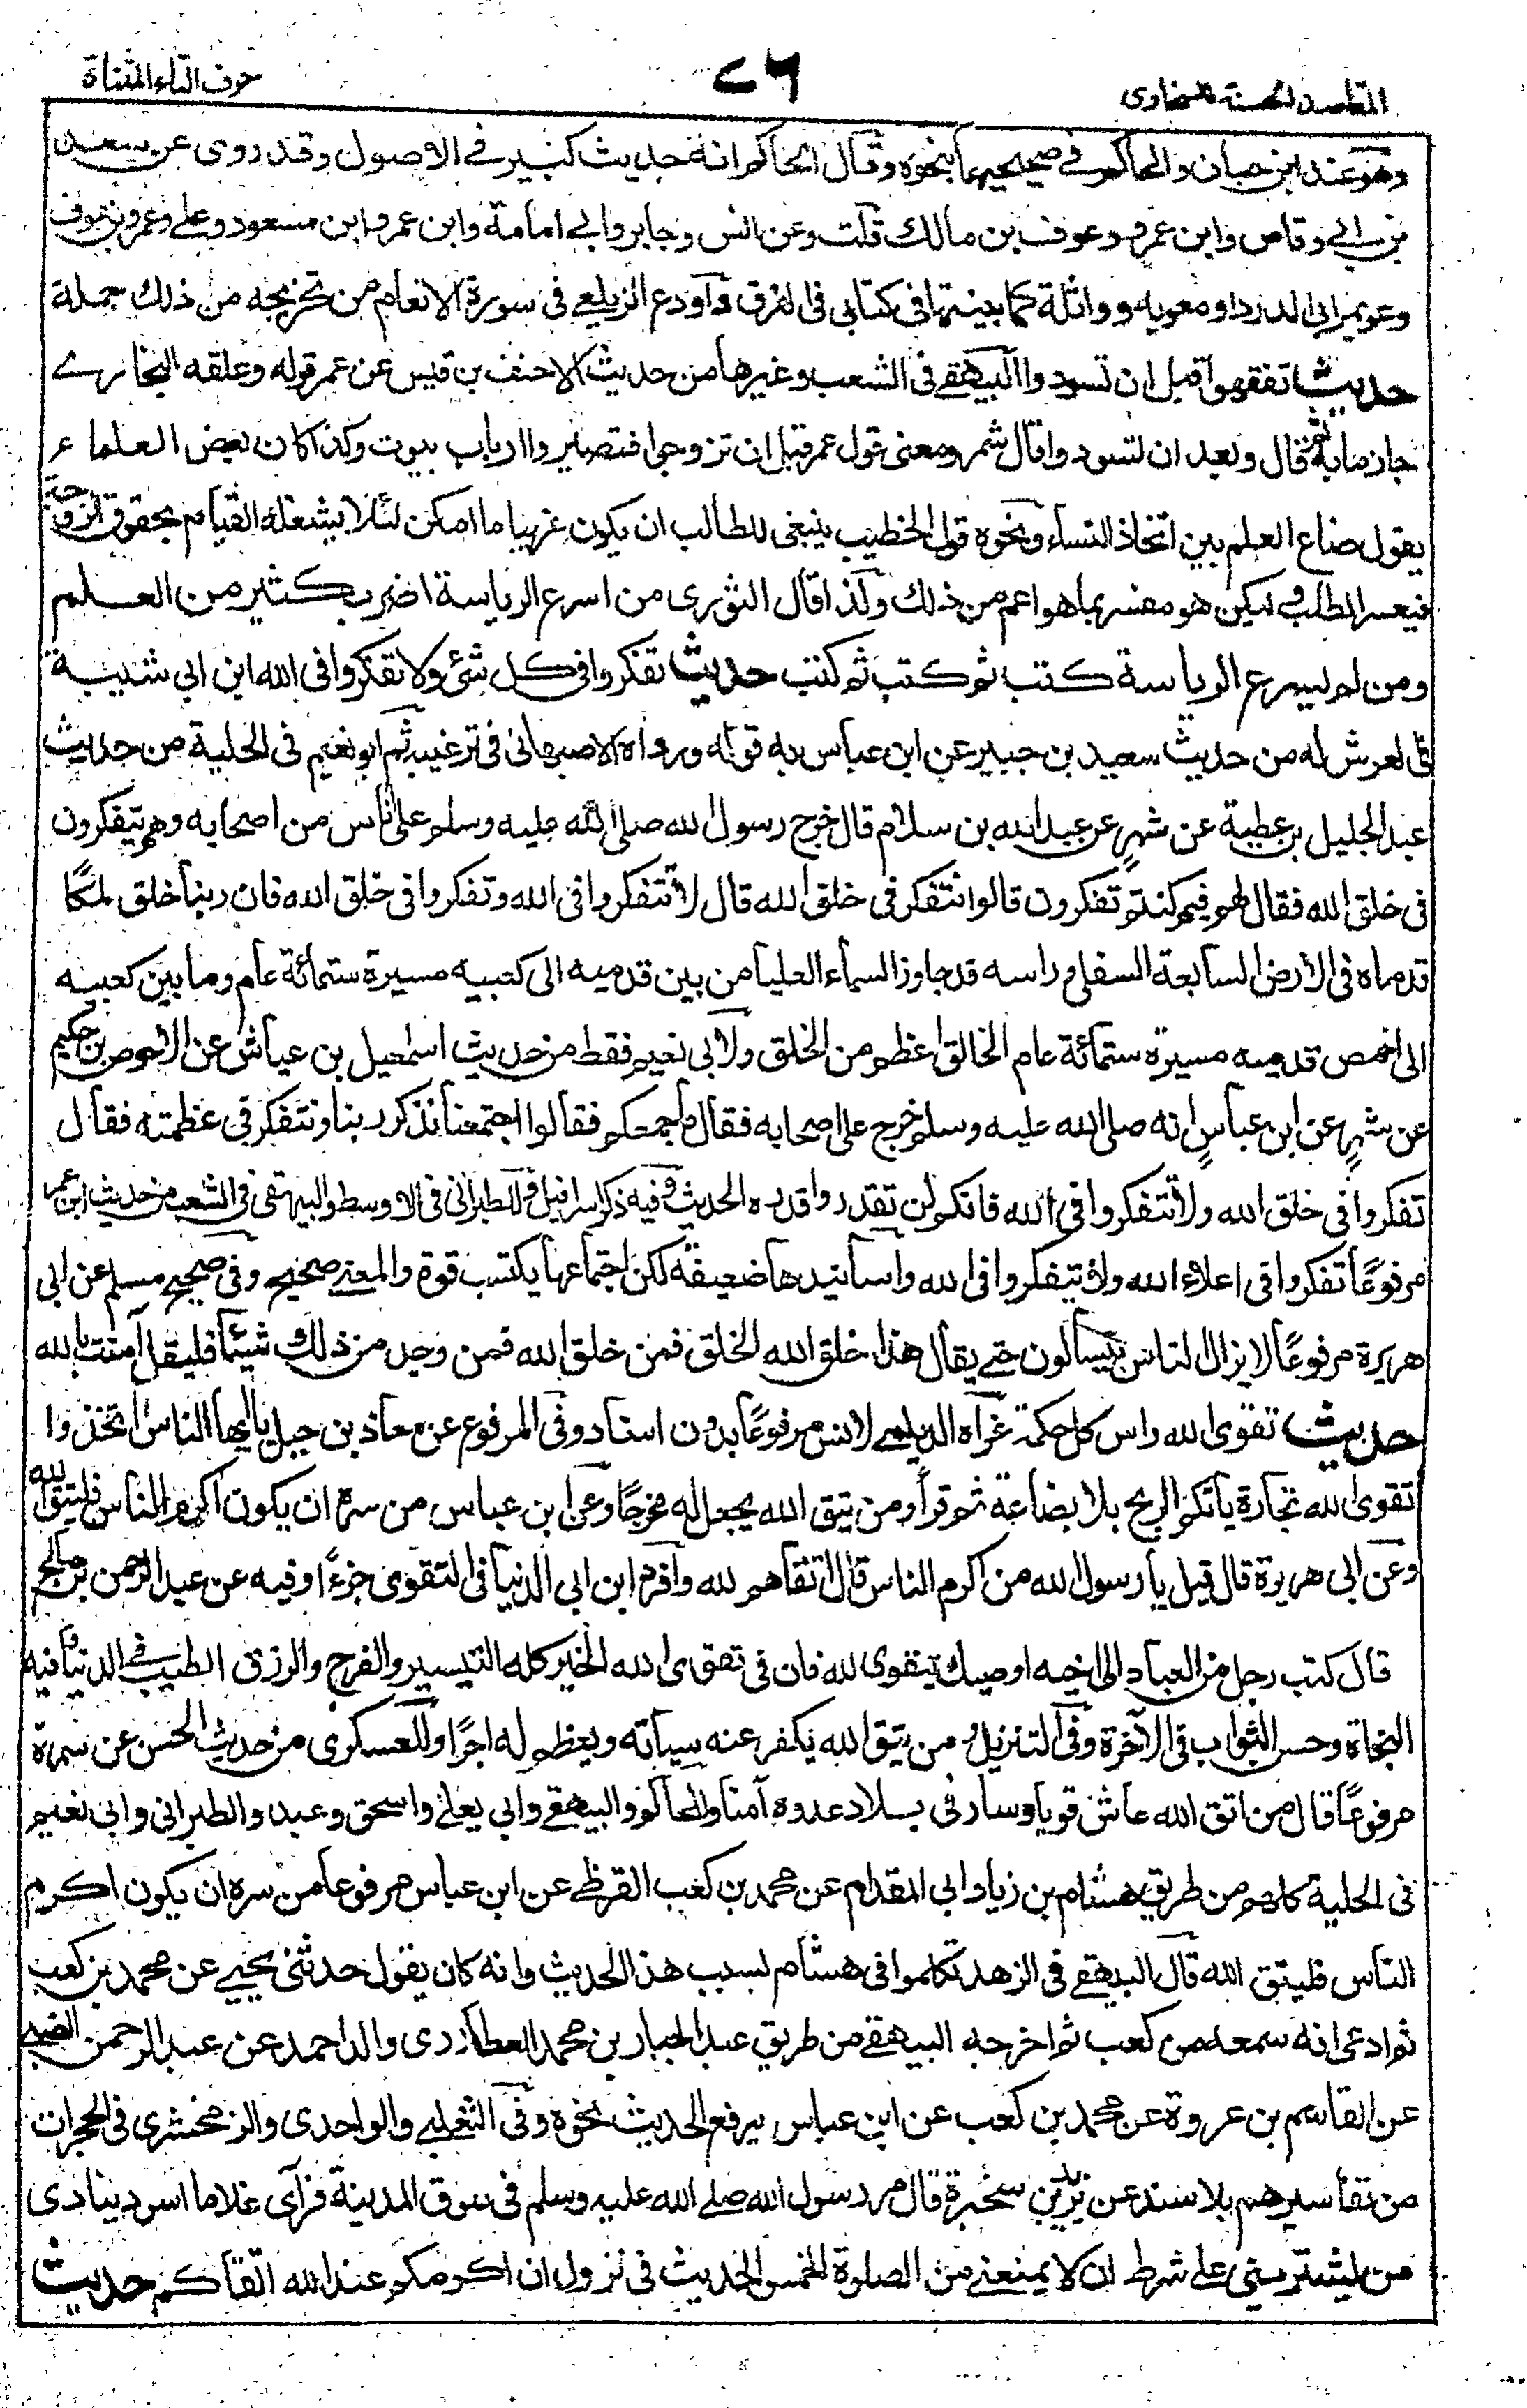 المقاصد الحسنة للسخاوى
٧٦
حرف التاء المثناة
وهو عند ابن حبان والحاكم في صحيحيهما بنحوه وقال الحاكم انه حديث كبير في الاصول وقد روى عن سعد
بن ابي وقاص وابن عمرو وعوف بن مالك قلت وعن انس وجابر وابي امامة وابن عمر وابن مسعود وعلي وعمرو بن عوف
وعويمر ابي الدرداء ومعوية وواثلة كما بينتها في كتابي في الفرق واودع الزيلعي في سورة الانعام من تخريجه من ذلك جملة
حديث تفقهوا قبل ان تسودوا البيهقي في الشعب وغيرها من حديث الاحنف بن قيس عن عمر قوله وعلقه البخاري
جازما به ثم قال وبعد ان تسودوا قال شمر ومعنى قول عمر قبل ان تزوجوا فتصيروا ارباب بيوت وكذا كان بعض العلماء
يقول ضاع العلم بين اتخاذ النساء ونحوه قول الخطيب ينبغي للطالب ان يكون عزبا ما امكن لئلا يشغله القيام بحقوق الزوجية
فيعسر المطلب ولكن هو مفسر بما هو اعم من ذلك ولذا قال الثورى من اسرع الرياسة اضر بكثير من العلم
ومن لم يسرع الرياسة كتب ثم كتب ثم كتب حديث تفكروا في كل شئ ولا تفكروا في الله ابن ابي شيبة
في العرش له من حديث سعيد بن جبير عن ابن عباس به قوله ورواه الاصبهاني في ترغيبه ثم ابو نعيم في الحلية من حديث
عبد الجليل بن عطية عن شهر عن عبد الله بن سلام قال خرج رسول الله صلى الله عليه وسلم على اناس من اصحابه وهم يتفكرون
في خلق الله فقال لهم فيم كنتم تفكرون قالوا نتفكر في خلق الله قال لا تتفكروا في الله وتفكروا في خلق الله فان ربنا خلق ملكا
قدماه في الارض السابعة السفلى وراسه قد جاوز السماء العليا من بين قدميه الى كعبيه مسيرة ستمائة عام وما بين كعبيه
الى اخمص قدميه مسيرة ستمائة عام الخالق اعظم من الخلق ولابي نعيم فقط من حديث اسمعيل بن عياش عن الاحوص بن حكيم
عن شهر عن ابن عباس انه صلى الله عليه وسلم خرج على اصحابه فقال ما جمعكم فقالوا اجتمعنا نذكر ربنا ونتفكر في عظمته فقال
تفكروا في خلق الله ولا تتفكروا في الله فانكم لن تقدروا قدره الحديث وفيه ذكر اسرافيل وللطبراني في الاوسط والبيهقى في الشعب من حديث ابن عمر
مرفوعا تفكروا في اعلاء الله ولا تتفكروا في الله واسانيدها ضعيفة لكن اجتماعها يكتسب قوة والمعنى صحيح وفي صحيح مسلم عن ابى
هريرة مرفوعا لا يزال الناس يتساءلون حتى يقال هذا خلق الله الخلق فمن خلق الله فمن وجد من ذلك شيئا فليقل آمنت بالله
حديث تقوى الله راس كل حكمة عزاه الديلمي لانس مرفوعا بدون اسناد وفي المرفوع عن معاذ بن جبل يا ايها الناس اتخذوا
تقوى الله تجارة ياتكم الربح بلا بضاعة ثم قرأ ومن يتق الله يجعل له مخرجا وعن ابن عباس من سره ان يكون اكرم الناس فليتق الله
وعن ابى هريرة قال قيل يا رسول الله من اكرم الناس قال اتقاهم لله وافرد ابن ابي الدنيا في التقوى جزءا وفيه عن عبد الرحمن بن صالح
قال كتب رجل من العباد الى اخيه اوصيك بتقوى الله فان في تقوى الله الخير كله التيسير والفرج والرزق الطيب في الدنيا وفيه
النجاة وحسن الثواب في الآخرة وفي التنزيل من يتق الله يكفر عنه سيآته ويعظم له اجرا وللعسكرى من حديث الحسن عن سمرة
مرفوعا قال من اتق الله عاش قويا وسار في بلاد عدوه آمنا وللحاكم والبيهقي وابي يعلى واسحق وعبد والطبرانى وابى نعيم
في الحلية كلهم من طريق هشام بن زياد ابي المقدام عن محمد بن كعب القرظي عن ابن عباس مرفوعا من سره ان يكون اكرم
الناس فليتق الله قال البيهقي في الزهد تكلموا في هشام بسبب هذا الحديث وانه كان يقول حدثني يحيى عن محمد بن كعب
ثم ادعى انه سمعه من كعب ثم اخرجه البيهقي من طريق عبد الجبار بن محمد العطاردى والد احمد عن عبد الرحمن الضبي
عن القاسم بن عروة عن محمد بن كعب عن ابن عباس يرفع الحديث بنحوه وفي الثعلبي والواحدى والزمخشرى في الحجرات
من تفاسيرهم بلا سند عن يزيد بن شجرة قال مر رسول الله صلى الله عليه وسلم في سوق المدينة فرآى غلاما اسود ينادى
من يشترينى على شرط ان لا يمنعني من الصلوة الخمس الحديث في نزول ان اكرمكم عند الله اتقاكم حديث